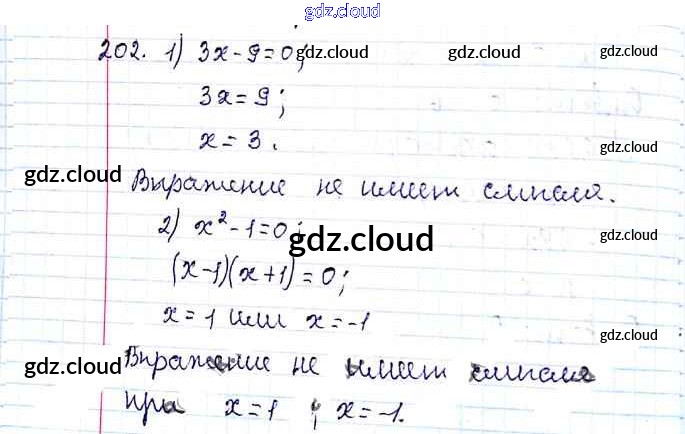 gdz.cloud
202. 1) 3x-9=0; gdz.cloud gdz.cloud
3x=9;
x=3.
gdz.cloud
gdz.cloud
Выражение не имеет смысла.
2) x²-1=0; gdz.cloud
gdz.cloud
(x-1)(x+1)=0;
x=1 или x=-1
gdz.cloud
gdz.cloud Выражение не имеет смысла gdz.cloud
при x=1 и x=-1.